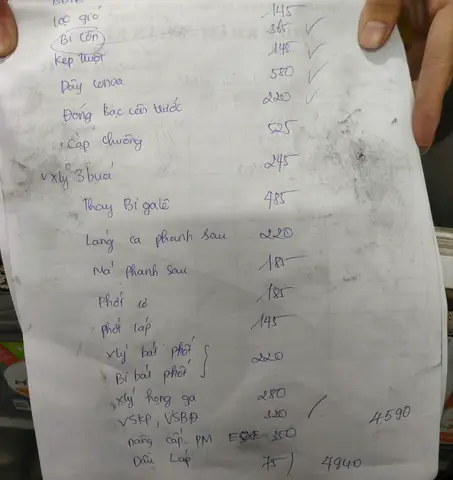 Lọc gió 145
Bi côn 385
Kẹp tuôi 145
Dây curoa 580
Đóng bạc côn trước 220
Cáp chuông 525
Xly 3 buá 245
Thay Bi galê 485
Láng ca phanh sau 220
Má phanh sau 185
Phớt 185
phớt láp 145
Xly bát phốt
Bi bát phốt 220
Xly họng ga 280
VSKP, VSBĐ 320 4590
nâng cấp PM 350
Dầu Láp 75 4940